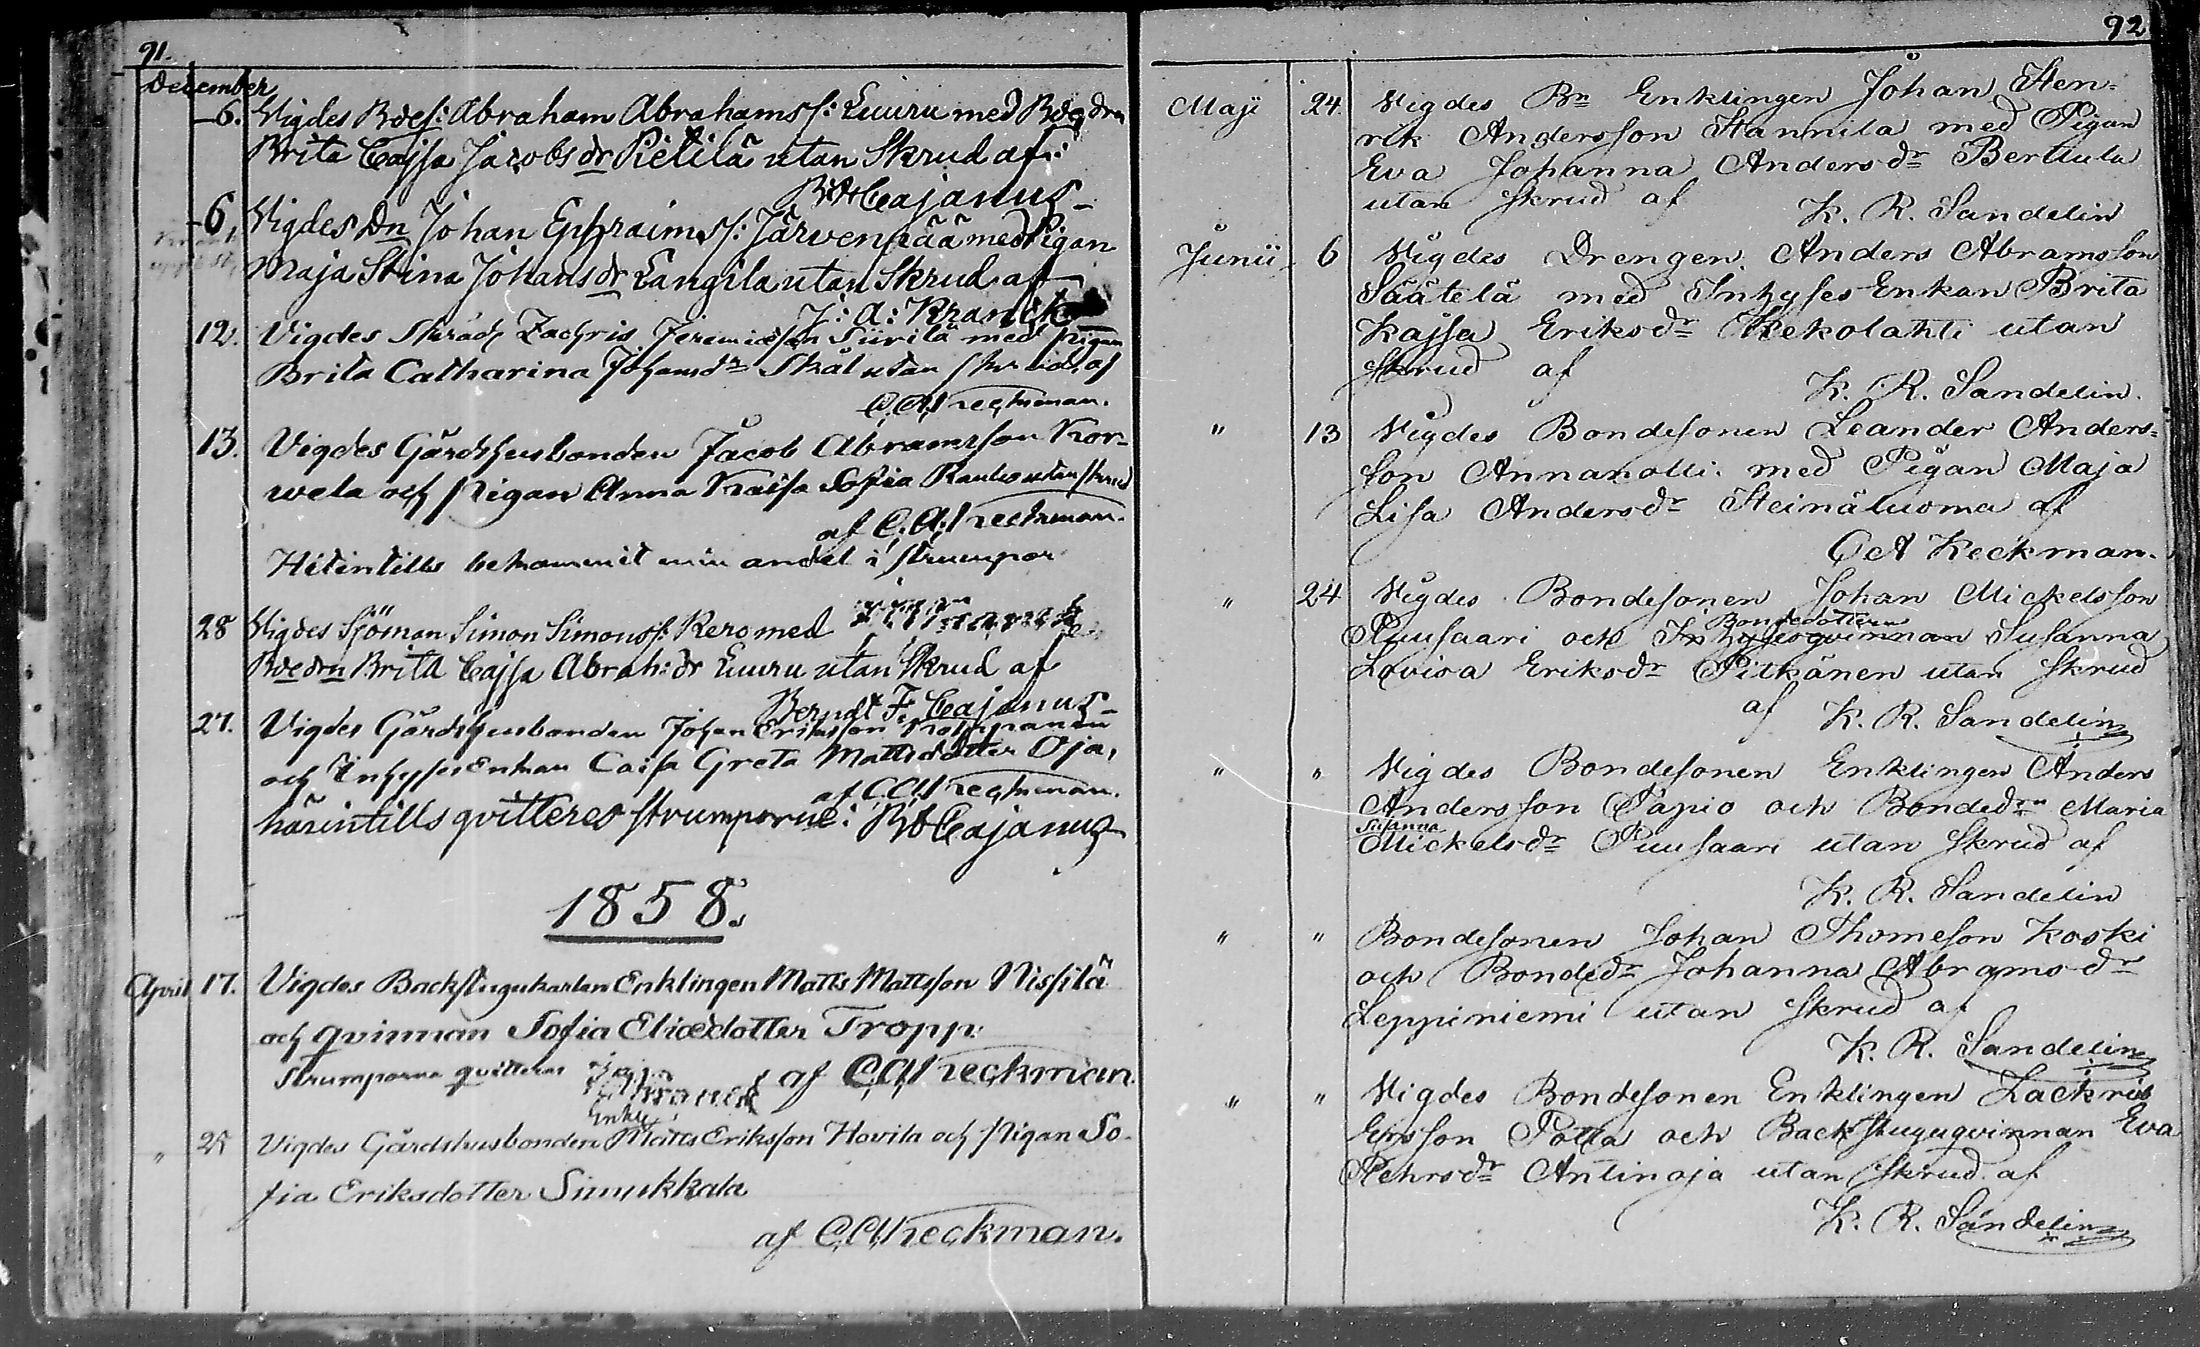 91.
December
6. Vigdes Bdes: Abraham Abrahamss: Luuru med Bdedrn
Brita Cajsa Jacobsdr Pietilä utan Skrud af:
B: F: Cajanus
6 Vigdes Dn Johan Ephraimss: Järvenpää med Pigan
Maja Stina Johansdr Langila utan Skrud af
J: A: Kranck
12. Vigdes Skrädd Zachris Jeremiæson Siirilä med Pigan
Brita Catharina Johansdr Skål utan skrud af
C. A. Keckman.
13. Vigdes Gårdshusbonden Jacob Abramsson Kor-
wela och Pigan Anna Kaisa Sofia Rauhio utan skrud
af C. A. Keckman.
Hitintills bekommit min andel i strumpor
J. A. Kranck
28 Vigdes Sjöman Simon Simonss: Kero med
Bdedrn Brita Cajsa Abrah:dr Luuru utan Skrud af
Berndt F. Cajanus
27. Vigdes Gårdshusbonden Johan Eriksson
och Inhyses Enkan Caisa Greta Mattsdotter Oja,
af C. A. Keckman.
härintills qvitteras strumporne: B. F. Cajanus
1858.
April 17. Vigdes Backstugukarlen Enklingen Matts Mattsson Nissilä
och qvinnan Sofia Eliædotter Tropp.
Strumporna qvitteras af C. A. Keckman
J. A. Kranck
Enkl
" 25 Vigdes Gårdshusbonden Matts Eriksson Hovila och Pigan So-
fia Eriksdotter Simukkala
af C. A. Keckman.
92
Maji 24. Vigdes Bn Enklingen Johan Hen-
rik Andersson Hannila med Pigan
Eva Johanna Andersdr Berttula
utan skrud af K. R. Sandelin
Junii 6 Vigdes Drengen Anders Abramsson
Säätelä med Inhyses Enkan Brita
Kajsa Eriksdr Kekolahti utan
skrud af K. R. Sandelin.
" 13 Vigdes Bondesonen Leander Anders-
son Annanolli med Pigan Maja
Lisa Andersdr Heinäluoma af
C A Keckman.
" 24 Vigdes Bondesonen Johan Mickelsson
Bondedottern
Puusaari och Inhysesqvinnan Susanna
Lovisa Eriksdr Pitkänen utan skrud
af K. R. Sandelin
" " Vigdes Bondesonen Enklingen Anders
Andersson Papio och Bondedrn Maria
Susanna
Mickelsdr Puusaari utan skrud af
K. R. Sandelin
" " Bondesonen Johan Thomeson Koski
och Bondedr Johanna Abramsdr
Leppiniemi utan skrud af
K. R. Sandelin
" " Vigdes Bondesonen Enklingen Zackris
Ersson Polla och Backstuguqvinnan Eva
Pehrsdr Antinoja utan skrud af
K. R. Sandelin